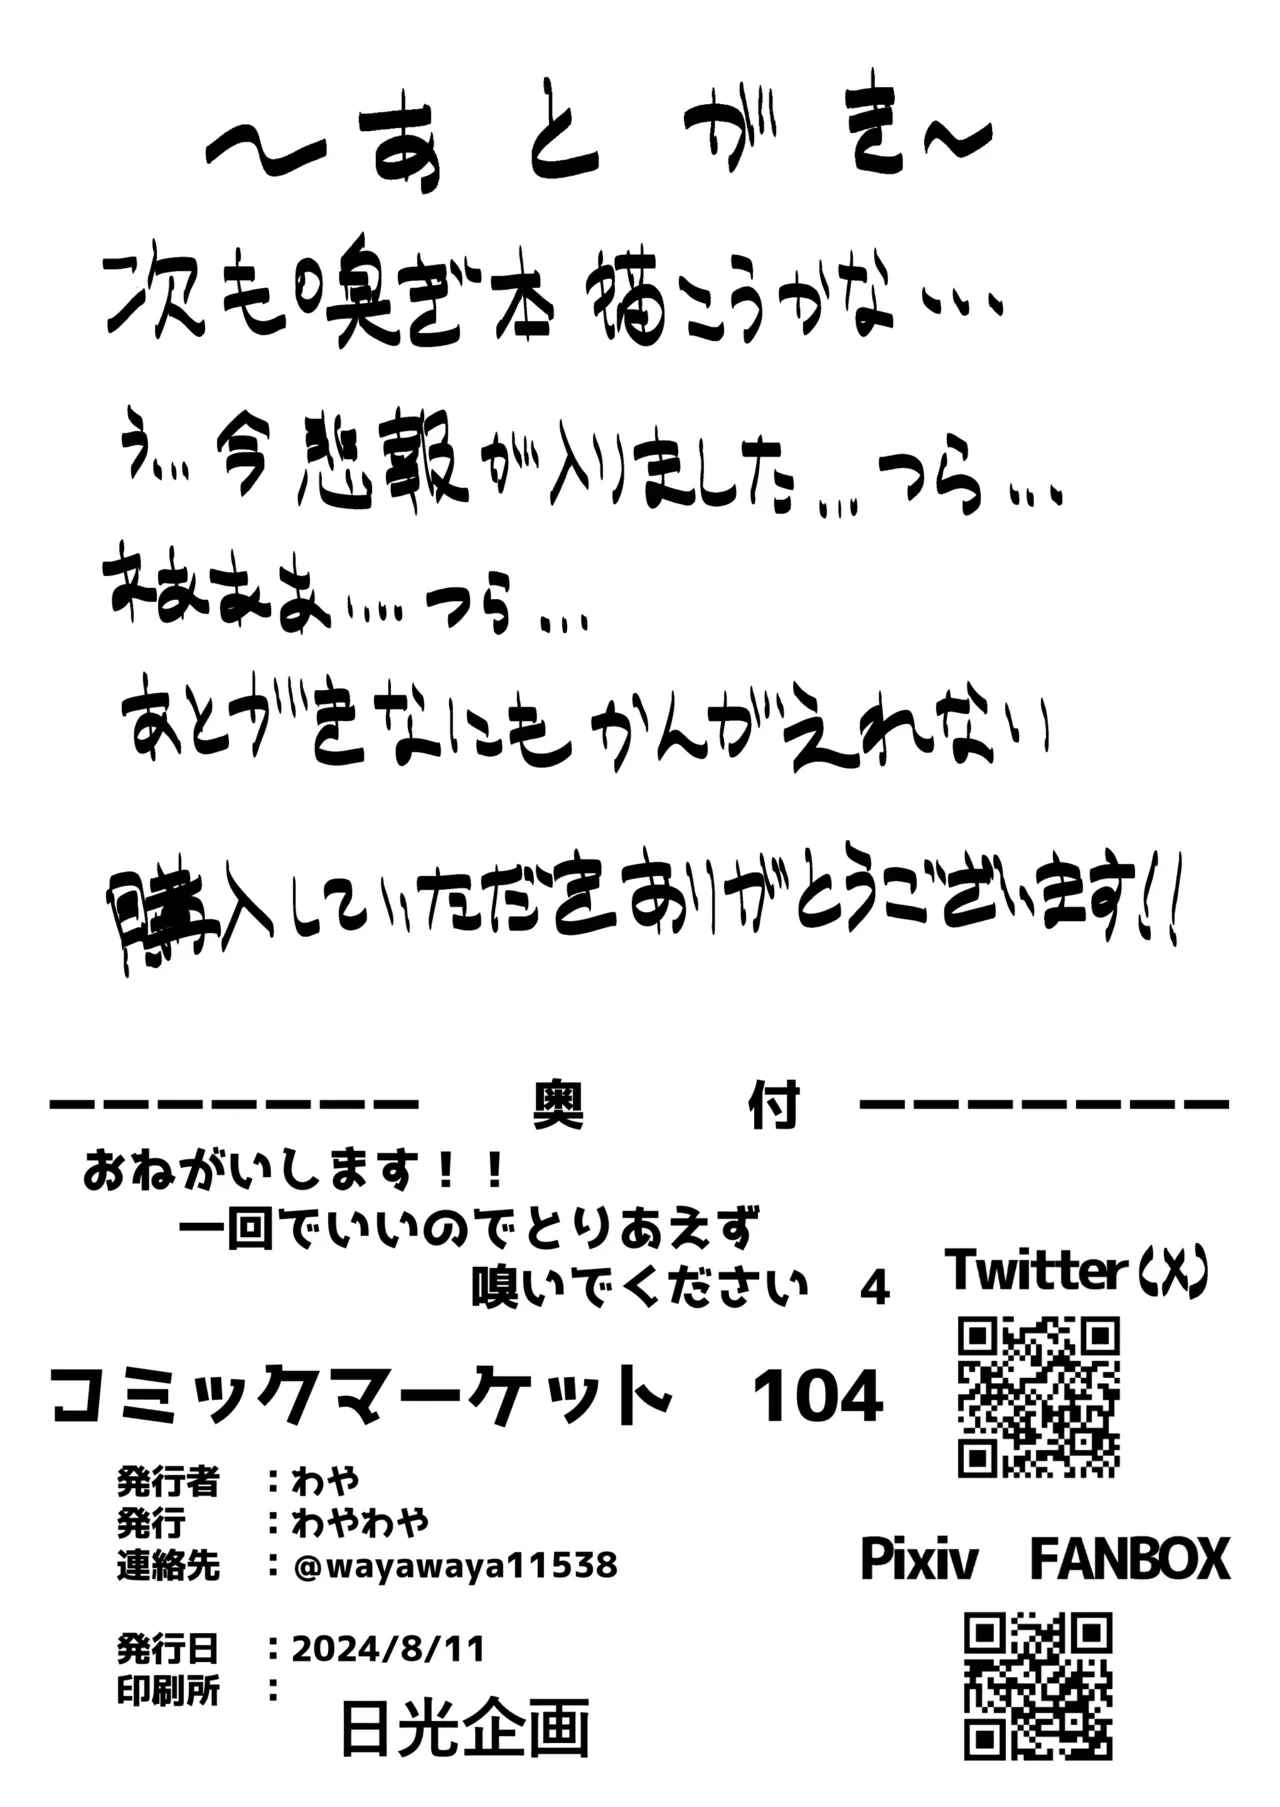 ～あとがき～
次も嗅ぎ本描こうかな...
う...今悲報が入りました...つら...
ねぇああ....つら...
あとがきなにもかんがえれない
購入していただきありがとうございます!!
ーーーーーーー 奥 付 ーーーーーーー
おねがいします！！
一回でいいのでとりあえず
嗅いでください 4
コミックマーケット 104
発行者 ：わや
発行 ：わやわや
連絡先 ：@wayawaya11538
発行日 ：2024/8/11
印刷所 ：
日光企画
Twitter(X)
Pixiv FANBOX